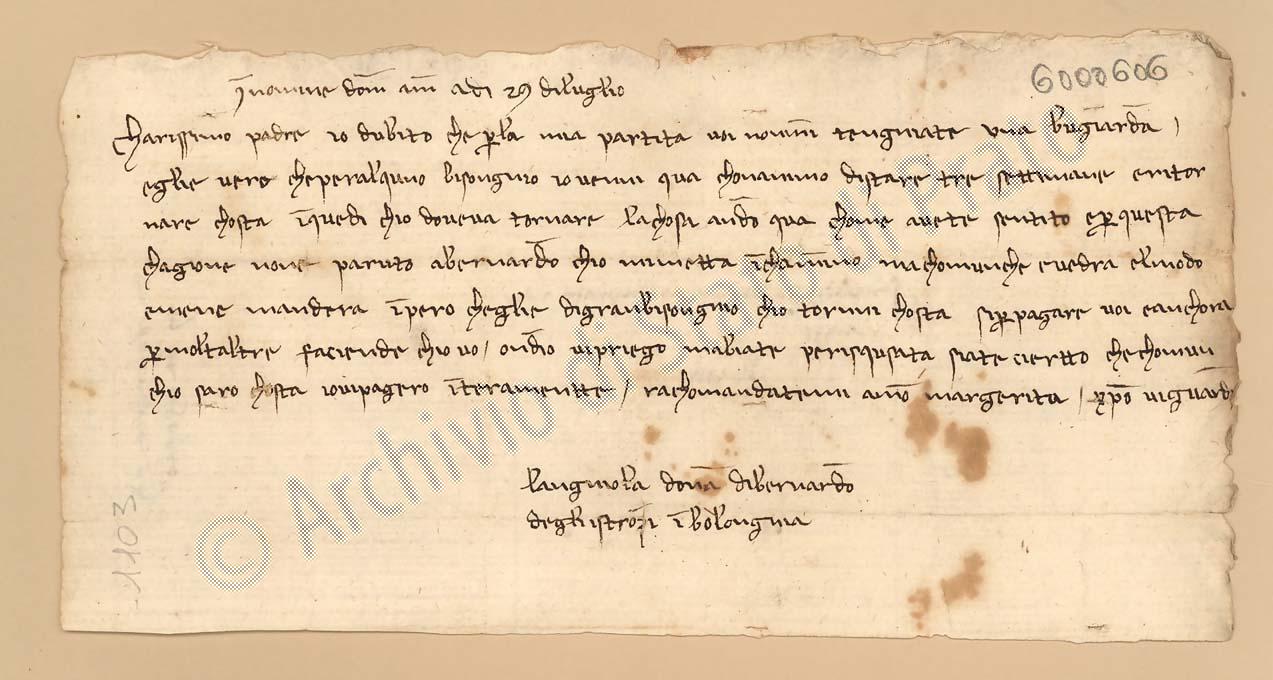 6000606
In nomine dom am adi 29 di luglio
Charissimo padre io dubito che per la mia partita voi no mi tengniate una bugiarda /
egli e vero che per alquno bisongnio io venni qua chon animo di stare tre settimane e ritor
nare chosta in que di ch'io doveva tornare la chosa ando qua chome avete sentito e per questa
chagione none paruto a bernardo ch'io mi metta in chamino ma chomunche e vedra el modo
e me ne mandera in pero ch'egli e di gran bisongnio ch'io torni chosta si per pagare voi e anchora
per molt altre faciende ch'i o vo / ond io vi priego m abiate per isqusata siate ciertto che chomun
ch'io saro chosta io vi pagero interamentte / rachomandatemi a mo margerita / xpo vi guardi
la ngniola dona di bernardo
degli istrozi in bolongnia
1103
© Archivio di Stato di Prato